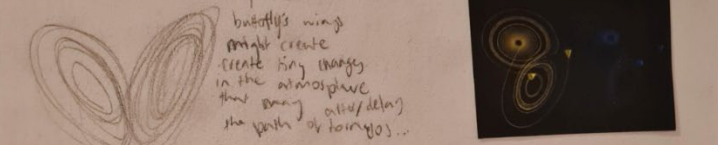 butterfly's wings
might create
create tiny changes
in the atmosphere
that may alter/delay
the path of tornados...